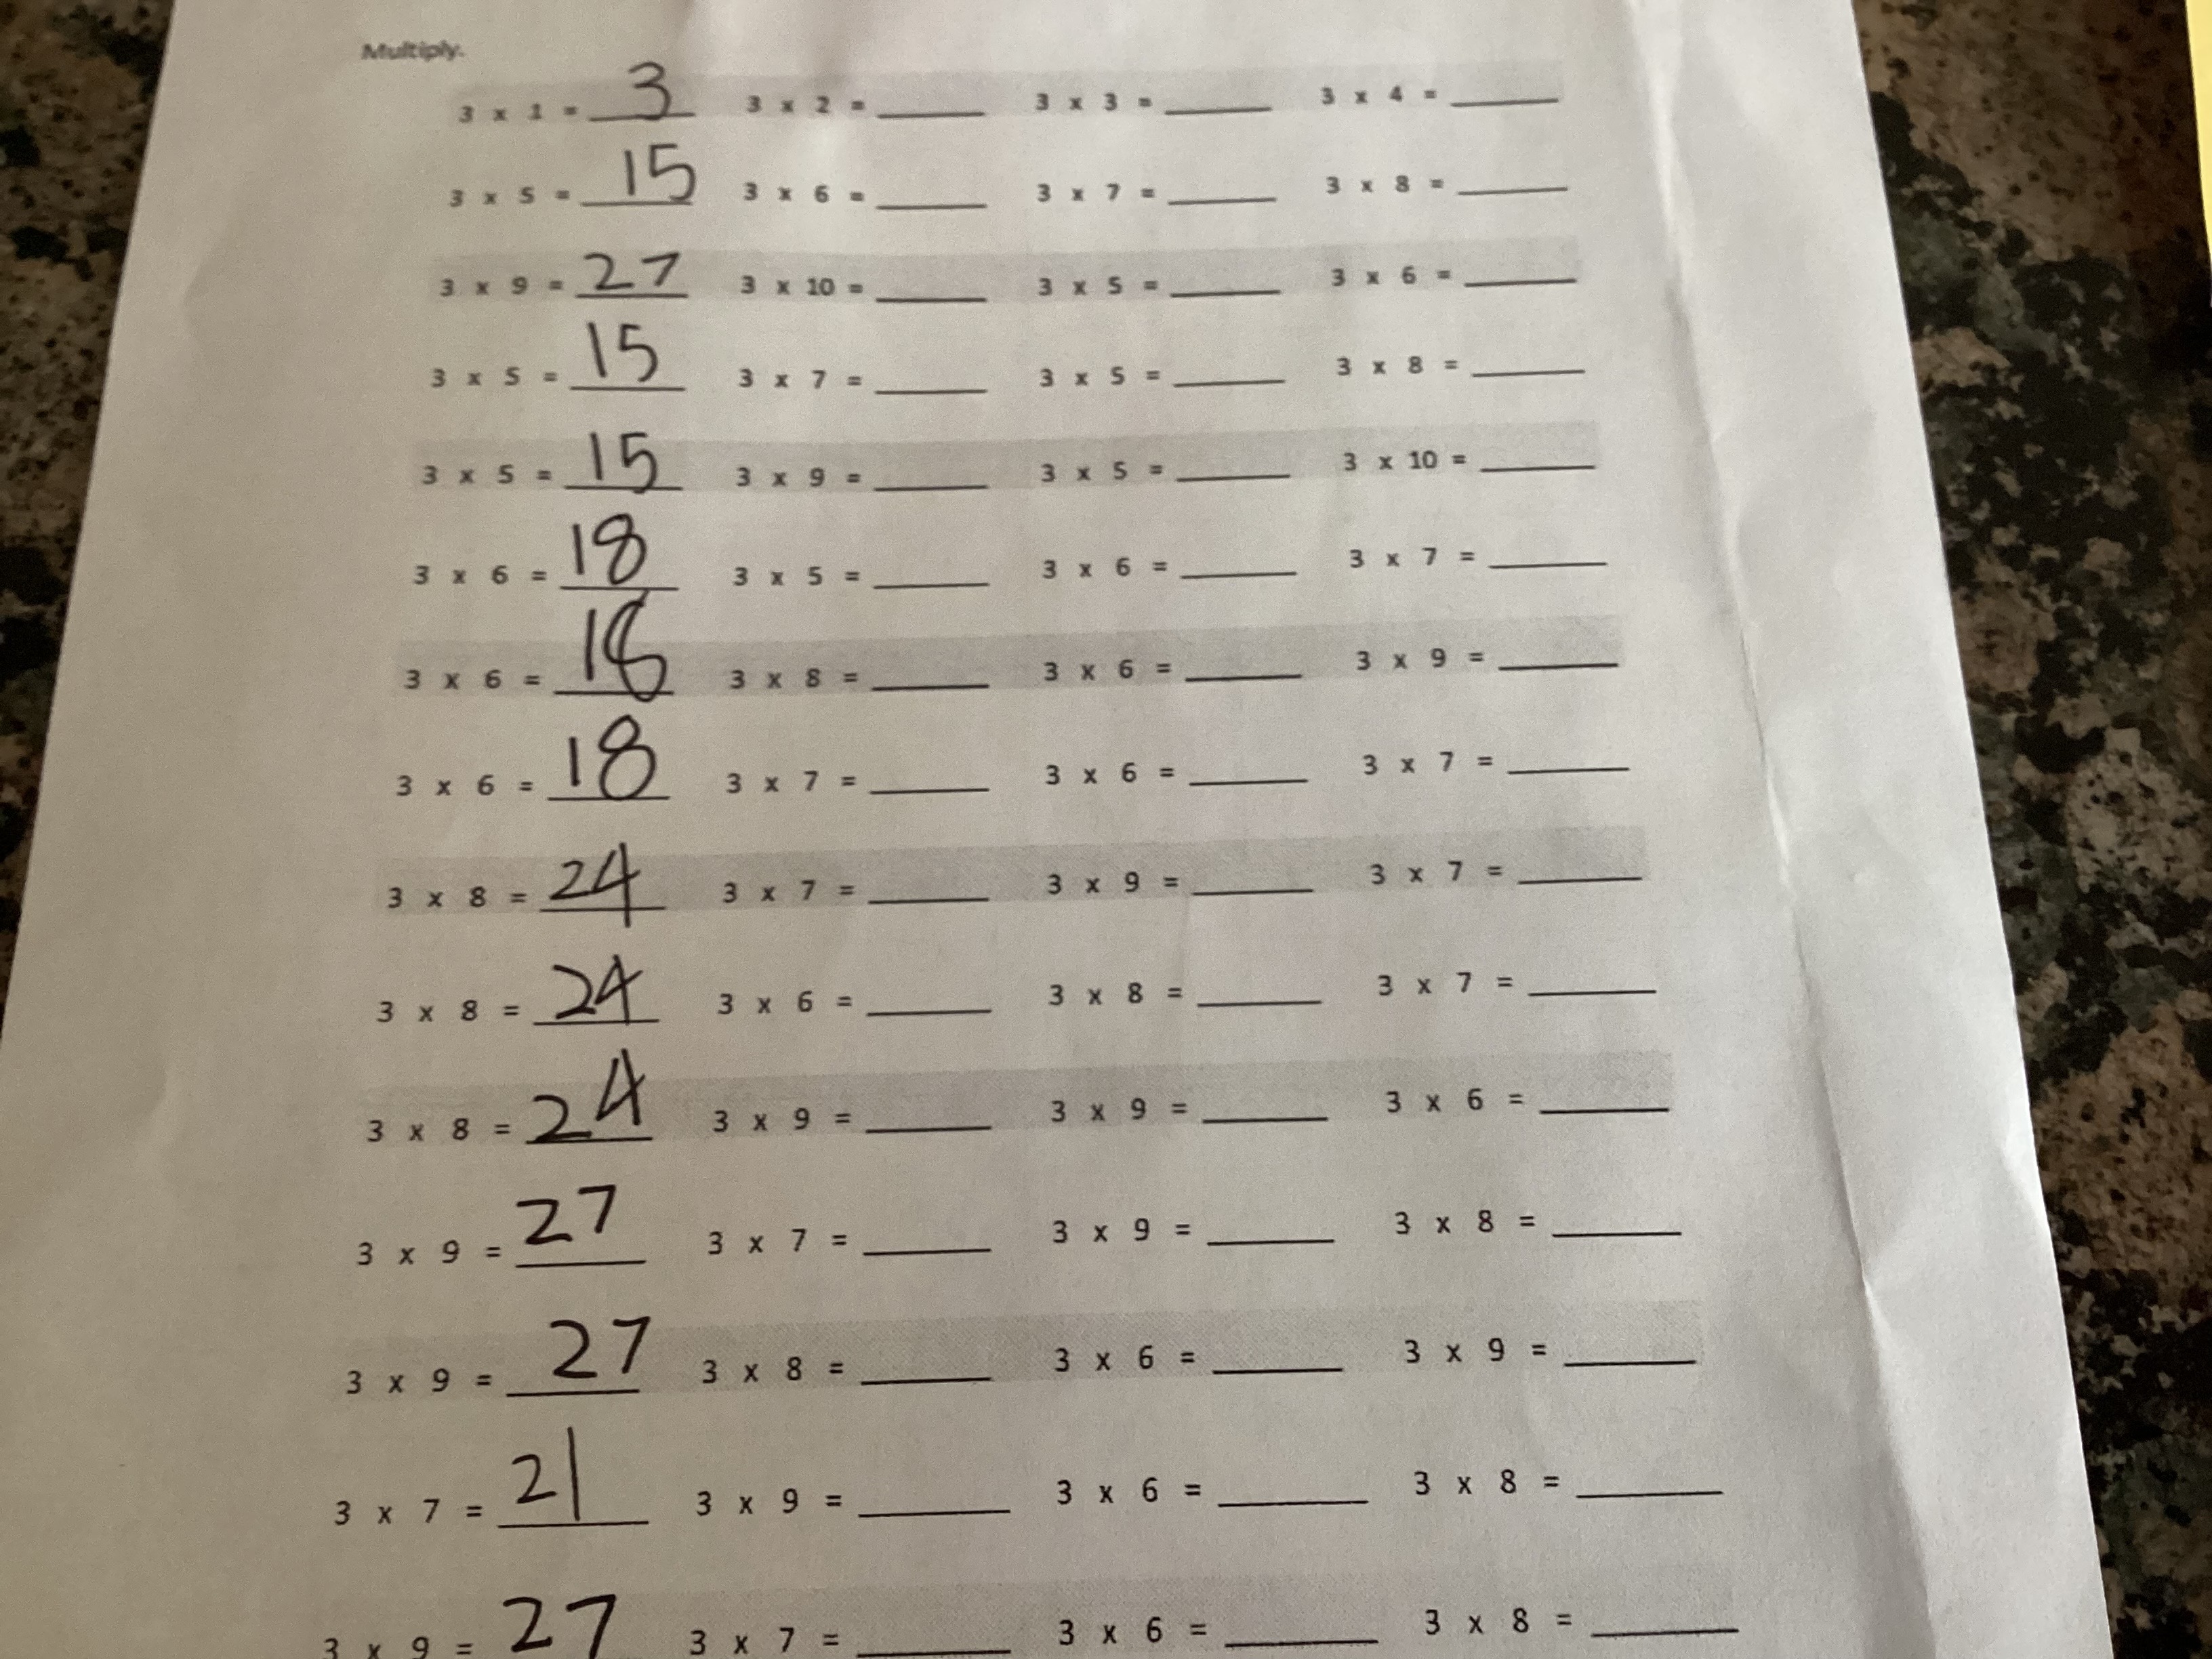 Multiply.
3 x 1 = 3 3 x 2 = ____ 3 x 3 = ____ 3 x 4 = ____
3 x 5 = 15 3 x 6 = ____ 3 x 7 = ____ 3 x 8 = ____
3 x 9 = 27 3 x 10 = ____ 3 x 5 = ____ 3 x 6 = ____
3 x 5 = 15 3 x 7 = ____ 3 x 5 = ____ 3 x 8 = ____
3 x 5 = 15 3 x 9 = ____ 3 x 5 = ____ 3 x 10 = ____
3 x 6 = 18 3 x 5 = ____ 3 x 6 = ____ 3 x 7 = ____
3 x 6 = 18 3 x 8 = ____ 3 x 6 = ____ 3 x 9 = ____
3 x 6 = 18 3 x 7 = ____ 3 x 6 = ____ 3 x 7 = ____
3 x 8 = 24 3 x 7 = ____ 3 x 9 = ____ 3 x 7 = ____
3 x 8 = 24 3 x 6 = ____ 3 x 8 = ____ 3 x 7 = ____
3 x 8 = 24 3 x 9 = ____ 3 x 9 = ____ 3 x 6 = ____
3 x 9 = 27 3 x 7 = ____ 3 x 9 = ____ 3 x 8 = ____
3 x 9 = 27 3 x 8 = ____ 3 x 6 = ____ 3 x 9 = ____
3 x 7 = 21 3 x 9 = ____ 3 x 6 = ____ 3 x 8 = ____
3 x 9 = 27 3 x 7 = ____ 3 x 6 = ____ 3 x 8 = ____